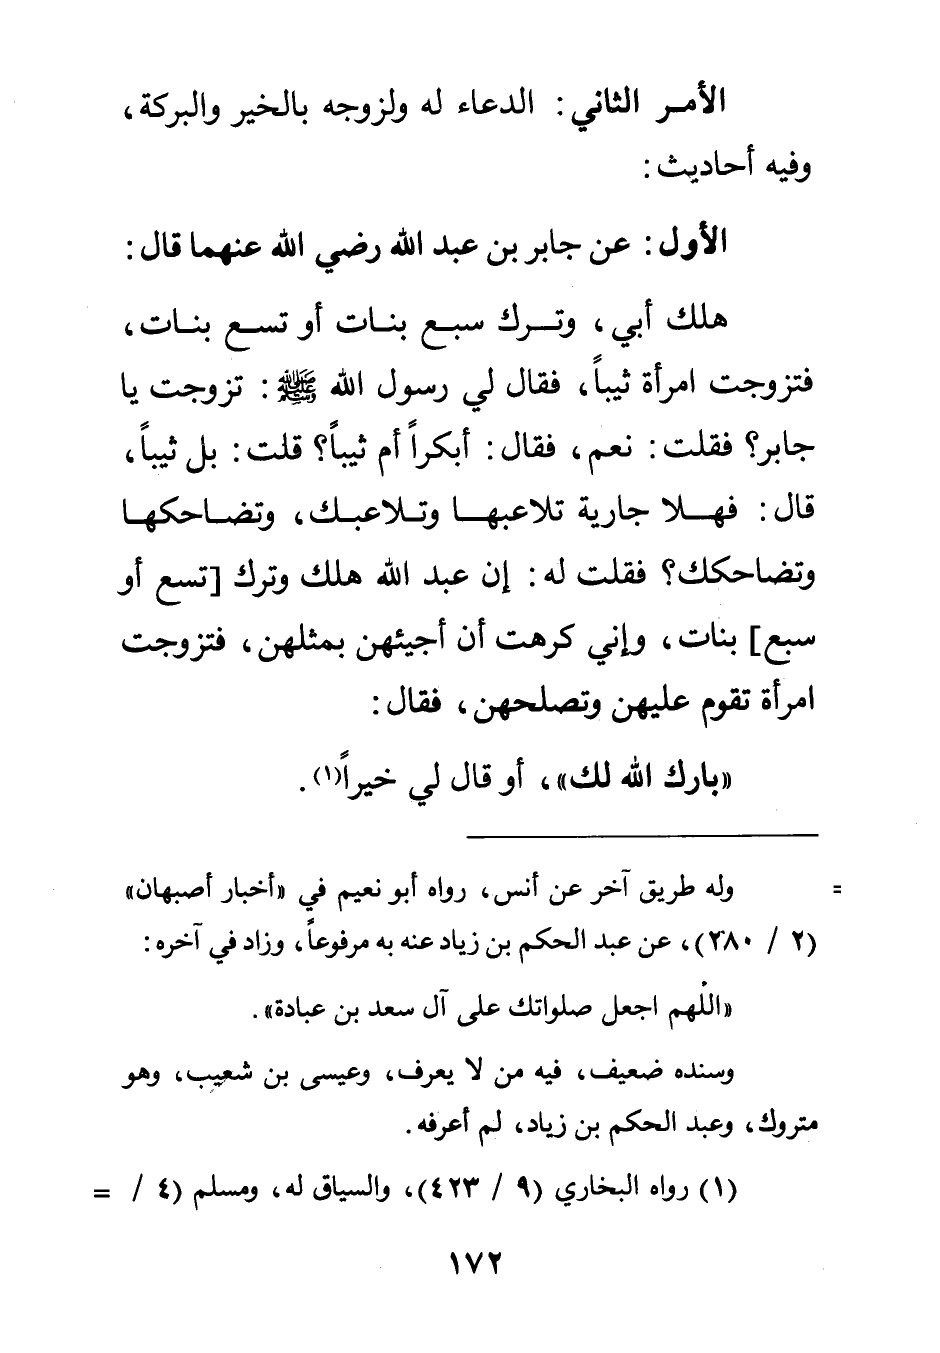 الأمر الثاني: الدعاء له ولزوجه بالخير والبركة،
وفيه أحاديث:
الأول: عن جابر بن عبد الله رضي الله عنهما قال:
هلك أبي، وترك سبع بنات أو تسع بنات،
فتزوجت امرأة ثيباً، فقال لي رسول الله ﷺ: تزوجت يا
جابر؟ فقلت: نعم، فقال: أبكراً أم ثيباً؟ قلت: بل ثيباً،
قال: فهلا جارية تلاعبها وتلاعبك، وتضاحكها
وتضاحكك؟ فقلت له: إن عبد الله هلك وترك [تسع أو
سبع] بنات، وإني كرهت أن أجيئهن بمثلهن، فتزوجت
امرأة تقوم عليهن وتصلحهن، فقال:
«بارك الله لك»، أو قال لي خيراً(١).
= وله طريق آخر عن أنس، رواه أبو نعيم في «أخبار أصبهان»
(٢ / ٢٨٠)، عن عبد الحكم بن زياد عنه به مرفوعاً، وزاد في آخره:
«اللهم اجعل صلواتك على آل سعد بن عبادة».
وسنده ضعيف، فيه من لا يعرف، وعيسى بن شعيب، وهو
متروك، وعبد الحكم بن زياد، لم أعرفه.
(١) رواه البخاري (٩ / ٤٢٣)، والسياق له، ومسلم (٤ / =
١٧٢